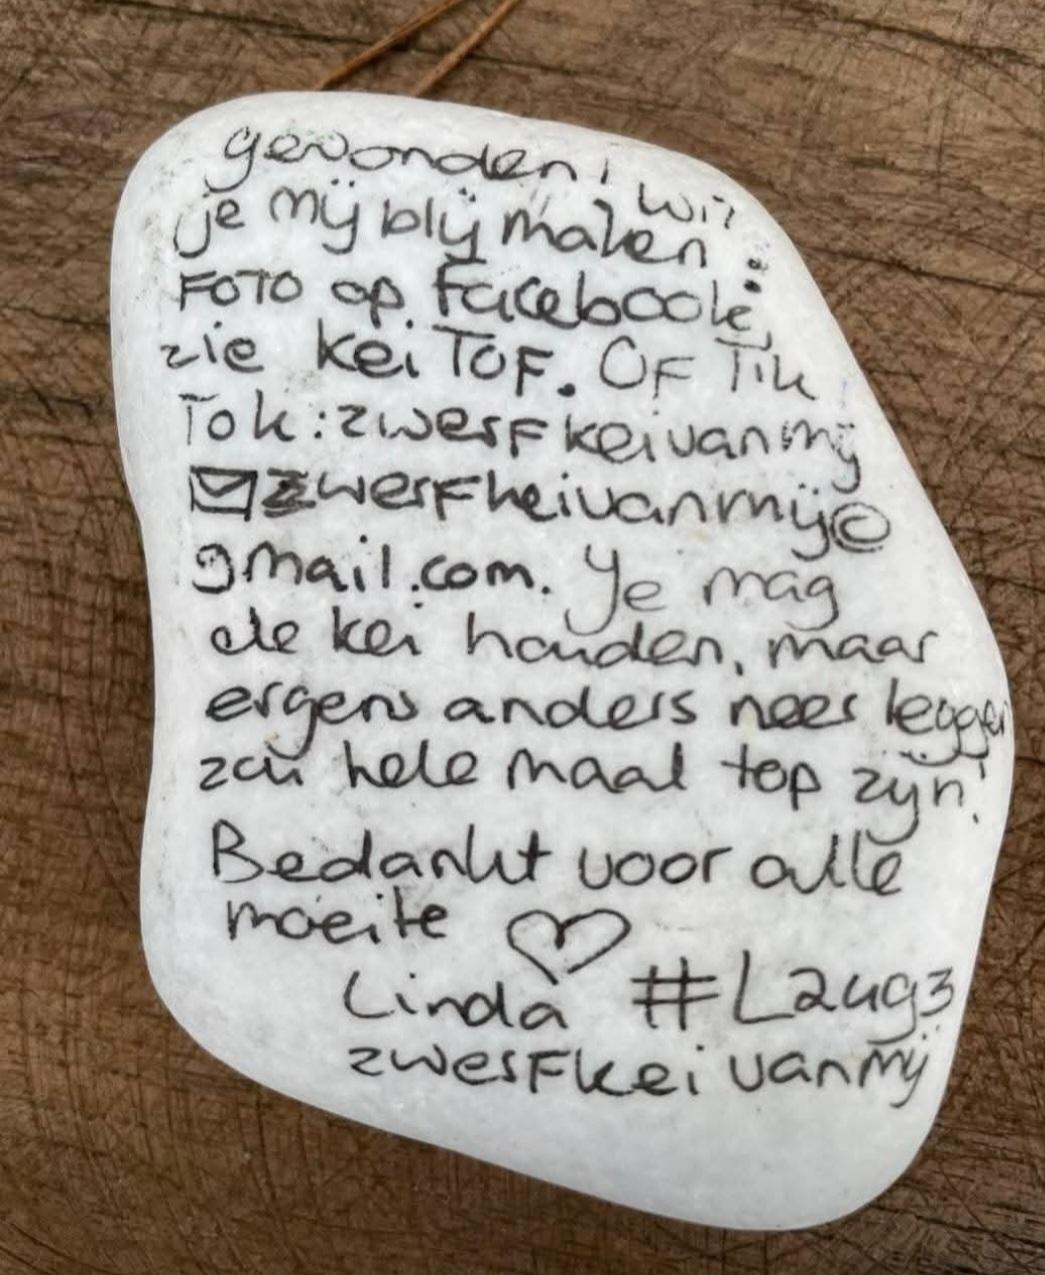 gevonden! Wil
je mij blij maken:
FOTO op facebook,
zie kei TOF. OF Tik
Tok: zwerfkeivanmij
zwerfkeivanmij@
gmail.com. Je mag
de kei houden, maar
ergens anders neer leggen
zou hele maal top zijn!
Bedankt voor alle
moeite ♡
Linda #L2493
zwerfkei vanmij